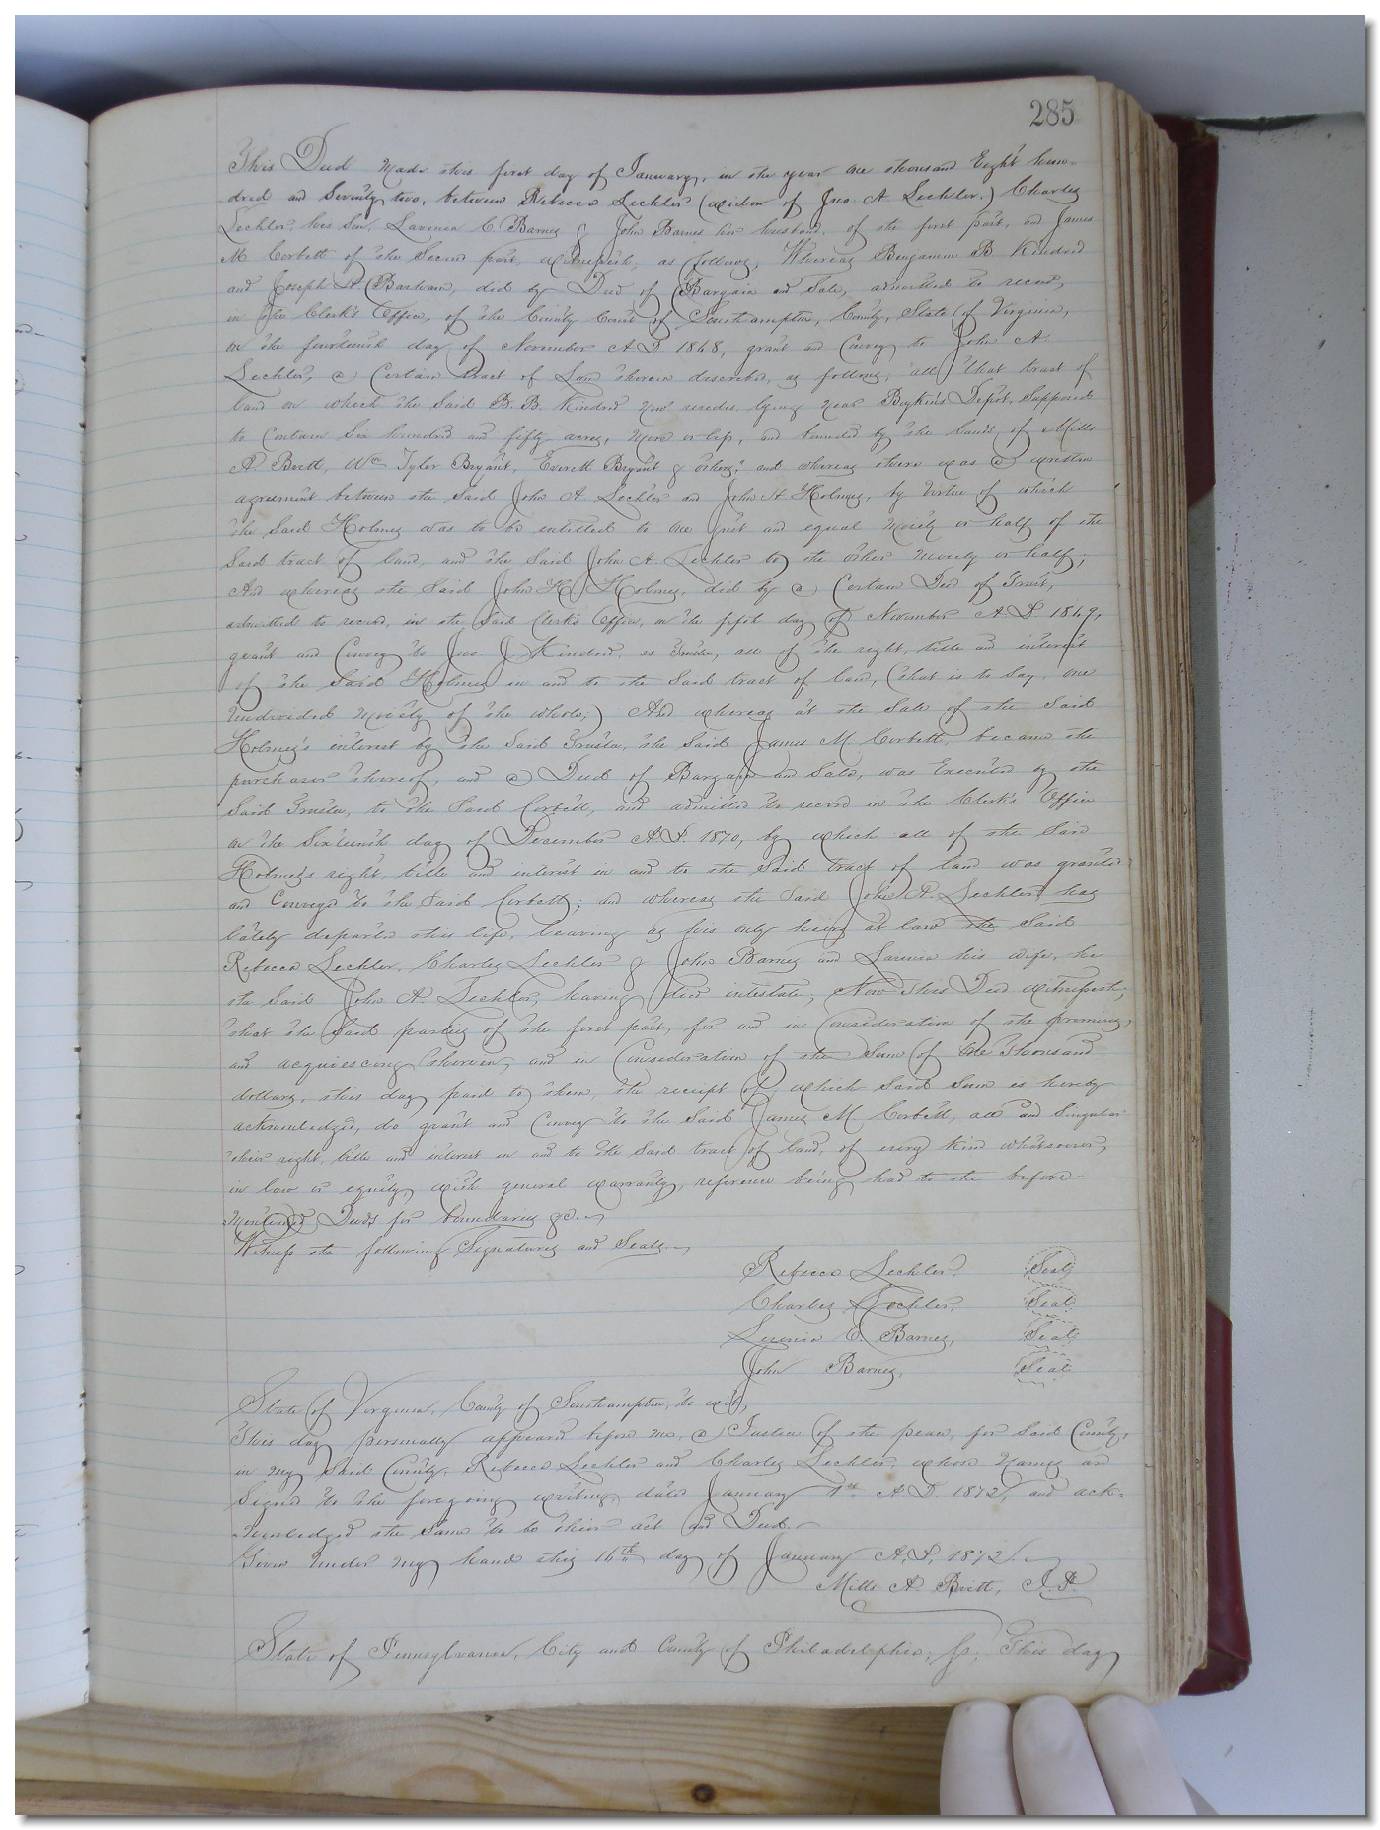 285
This Deed Made this first day of January, in the year one thousand Eight hun=
dred and Seventy two, between Rebecca Lechler (widow of Jno. A. Lechler,) Charles
Lechler, his Son, Lavinia C. Barnes & John Barnes her husband, of the first part, and James
M Corbett of the Second part, witnesseth, as follows, Whereas Benjamin B Kindred
and Joseph A Barham, did by Deed of Bargain and Sale, admitted to record,
in the Clerk's Office, of the County Court of Southampton, County, State of Virginia,
on the fourteenth day of November A.D 1868, grant and Convey to John A.
Lechler, a Certain tract of Land therein described, as follows, "all that tract of
land on which the Said B. B. Kindred now resides, lying near Boykins Depot, Supposed
to Contain Six hundred and fifty acres, more or less, and bounded by the lands of Mills
A. Britt, Wm Tyler Bryant, Everett Bryant & others;" and whereas there was a written
agreement between the Said John A Lechler and John H Holmes, by Virtue of which
the Said Holmes was to be entitled to one just and equal moiety or half of the
Said tract of land, and the Said John A. Lechler to the other moiety or half;
And whereas the Said John H Holmes, did by a Certain Deed of Trust,
admitted to record, in the Said Clerk's Office, on the fifth day of November A.D. 1869,
grant and Convey to Jno J Kindred, as Trustee, all of the right, title and interest
of the Said Holmes in and to the Said tract of land, (that is to Say, one
undivided moiety of the whole;) And whereas at the Sale of the Said
Holmes's interest by the Said Trustee, the Said James M. Corbett, became the
purchaser thereof, and a Deed of Bargain and Sale, was Executed by the
Said Trustee, to the Said Corbett, and admitted to record in the Clerk's Office
on the Sixteenth day of December A.D. 1870, by which all of the Said
Holmes's right, title and interest in and to the Said tract of land was granted
and Conveyed to the Said Corbett; and whereas the Said John A. Lechler, has
lately departed this life, leaving as his only heirs at law the Said
Rebecca Lechler, Charles Lechler & John Barnes and Lavinia his wife, he
the Said John A. Lechler, having died intestate, Now this Deed witnesseth,
that the Said parties of the first part, for and in Consideration of the premises,
and acquiescing therein, and in Consideration of the Sum of One Thousand
dollars, this day paid to them, the receipt of which Said Sum is hereby
acknowledged, do grant and Convey to the Said James M Corbett, all and Singular
their right, title and interest in and to the Said tract of land, of every kind whatsoever,
in law or equity, with general warranty, reference being had to the before
Mentioned Deeds for boundaries &c.
Witness the following Signatures and Seals.
Rebecca Lechler. Seal
Charles Lechler. Seal
Lavinia C. Barnes, Seal
John Barnes, Seal
State of Virginia, County of Southampton, to wit,
This day personally appeared before me, a Justice of the peace, for Said County,
in my Said County, Rebecca Lechler and Charles Lechler, whose Names are
Signed to the foregoing writing, dated January 1st A.D 1872, and ack=
nowledged the Same to be their act and Deed.
Given under my hand this 16th day of January A,D, 1872.
Mills A. Britt, J.P.
State of Pennsylvania, City and County of Philadelphia, Ss, This day